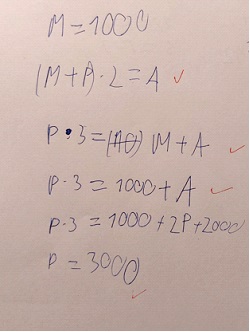 M = 1000
(M+P)·2 = A
P·3 = M + A
P·3 = 1000 + A
P·3 = 1000 + 2P + 2000
P = 3000